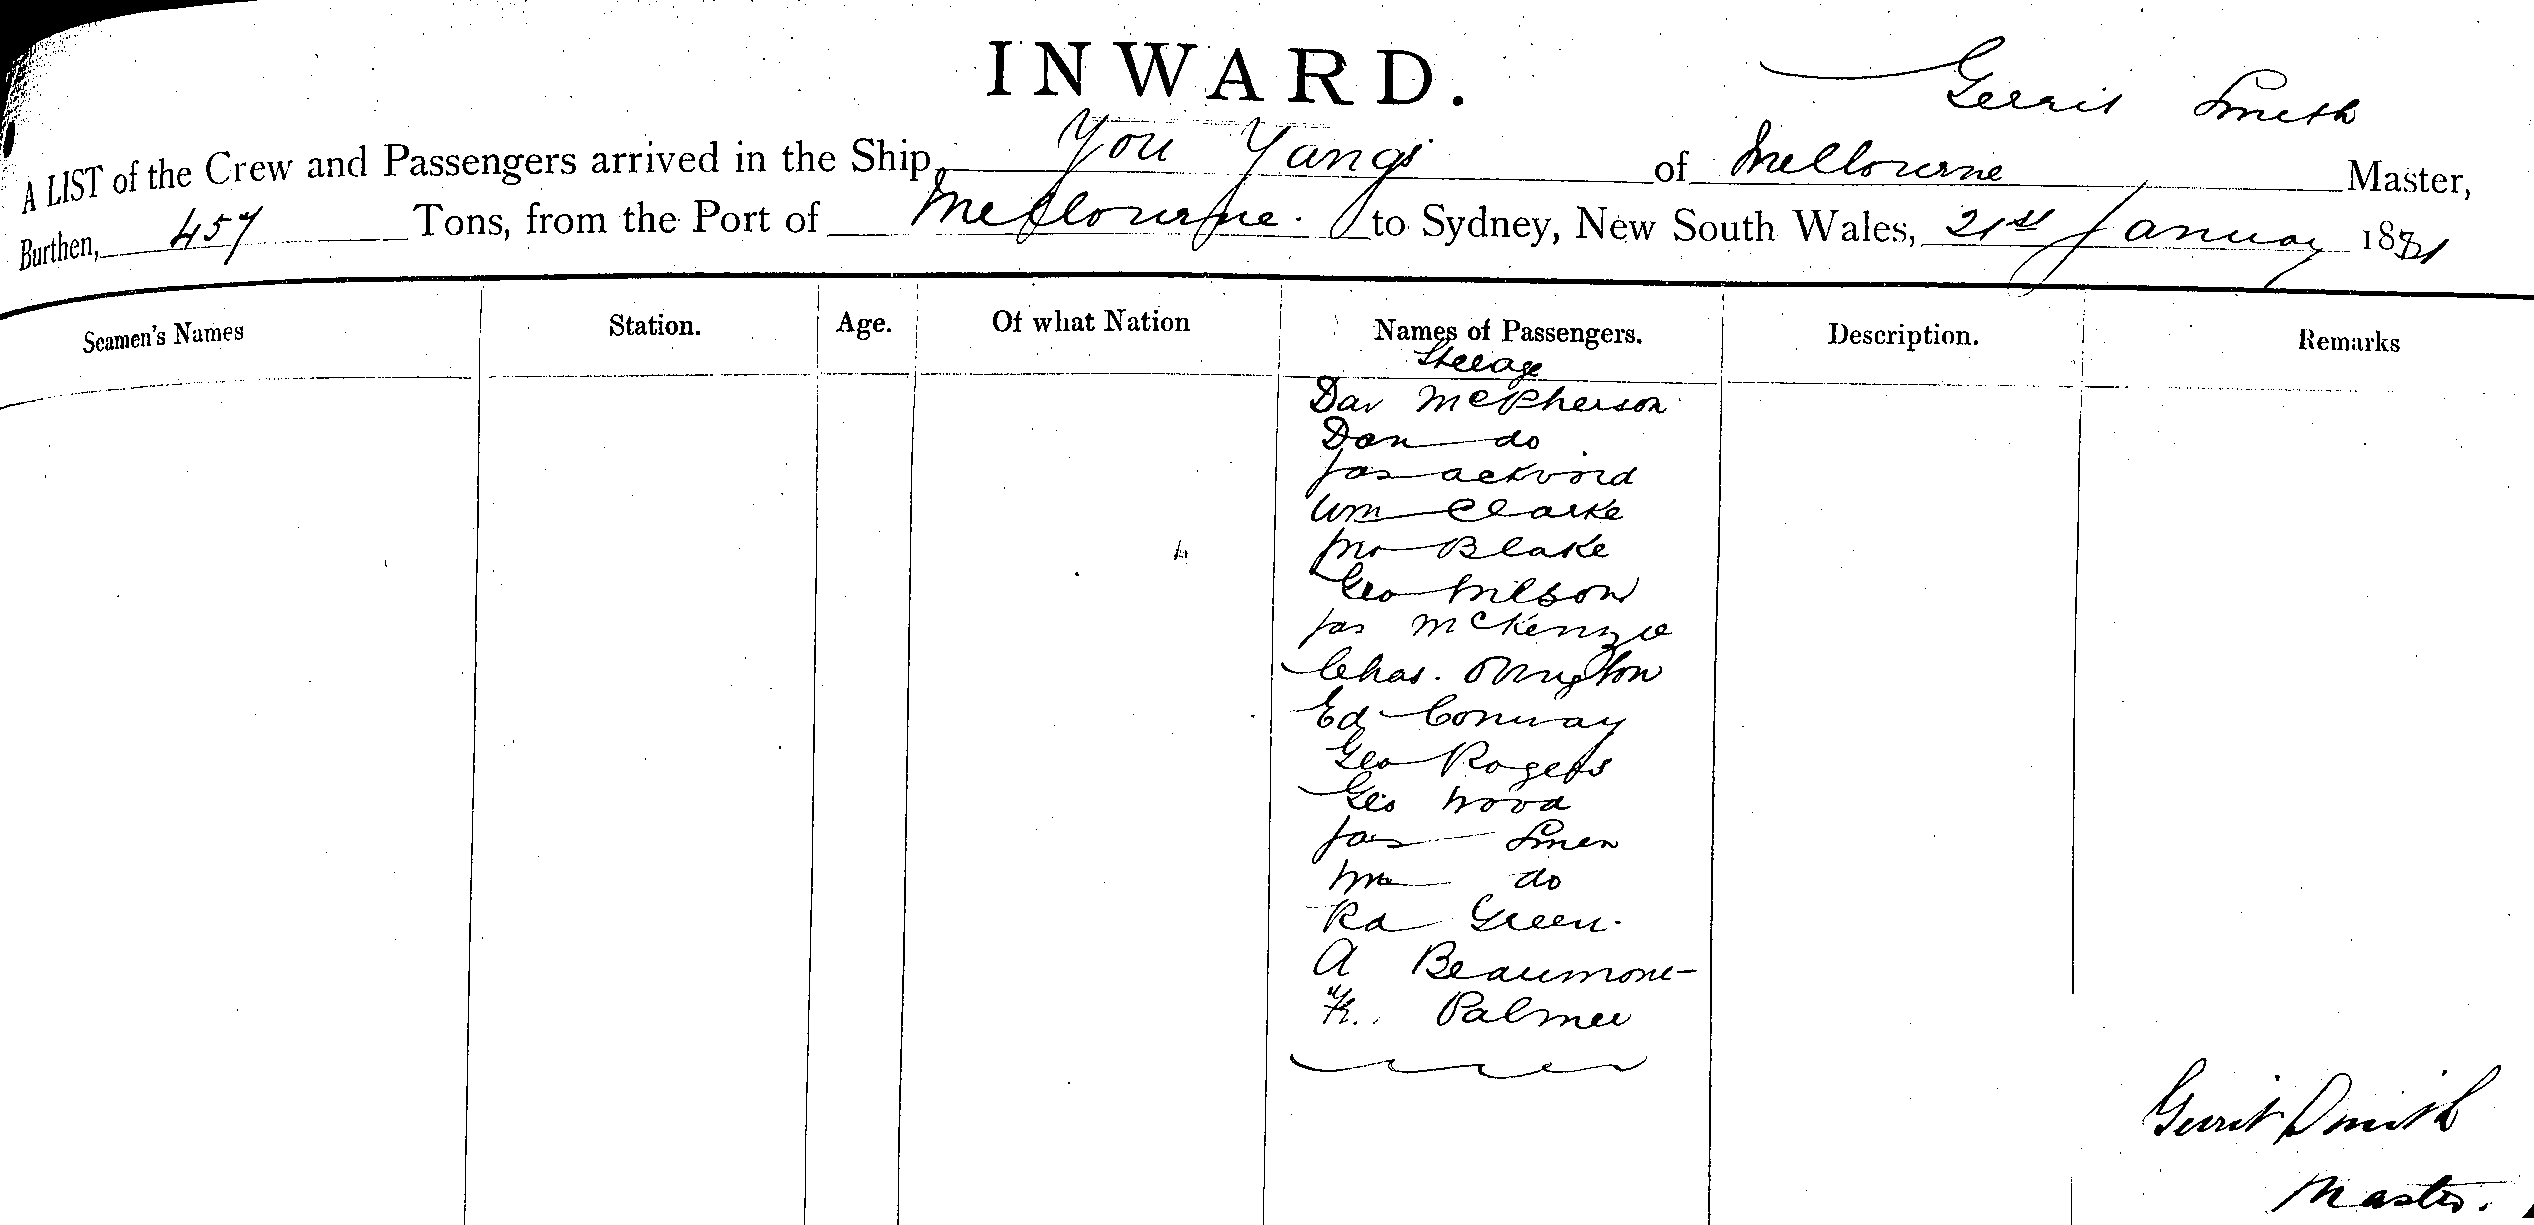 INWARD.
Gerrit Smith
A LIST of the Crew and Passengers arrived in the Ship, You Yangs of Melbourne Master,
Burthen, 457 Tons, from the Port of Melbourne. to Sydney, New South Wales, 21st January 1881
Seamen's Names Station. Age. Of what Nation Names of Passengers. Description. Remarks
Steerage
Dav McPherson
Dan do
Jas
Wm Clarke
Jno Blake
Geo Wilson
Jas McKenzie
Chas.
Ed Conway
Geo Rogers
Geo Wood
Jas
do
Rd Green.
A Beaumont
Palmer
Gerrit Smith
Master.